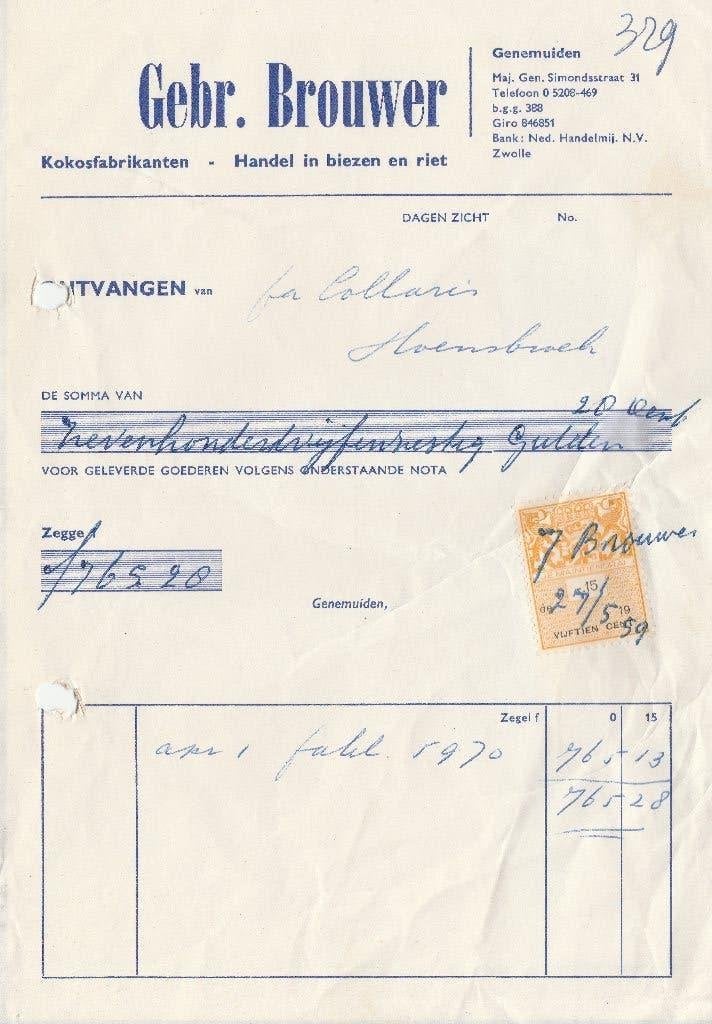 329
Gebr. Brouwer
Kokosfabrikanten - Handel in biezen en riet
Genemuiden
Maj. Gen. Simondsstraat 31
Telefoon 0 5208-469
b.g.g. 388
Giro 846851
Bank: Ned. Handelmij. N.V.
Zwolle
DAGEN ZICHT No.
NTVANGEN van fa Collaris
Hoensbroek
DE SOMMA VAN
20 Cent
Zevenhonderdvijfenzestig Gulden
VOOR GELEVERDE GOEDEREN VOLGENS ONDERSTAANDE NOTA
Zegge f
f 765 28
J Brouwer
15
27/5 19
59
VIJFTIEN CENT
Genemuiden,
Zegel f 0 15
1 fakt. 5970 765 13
765 28